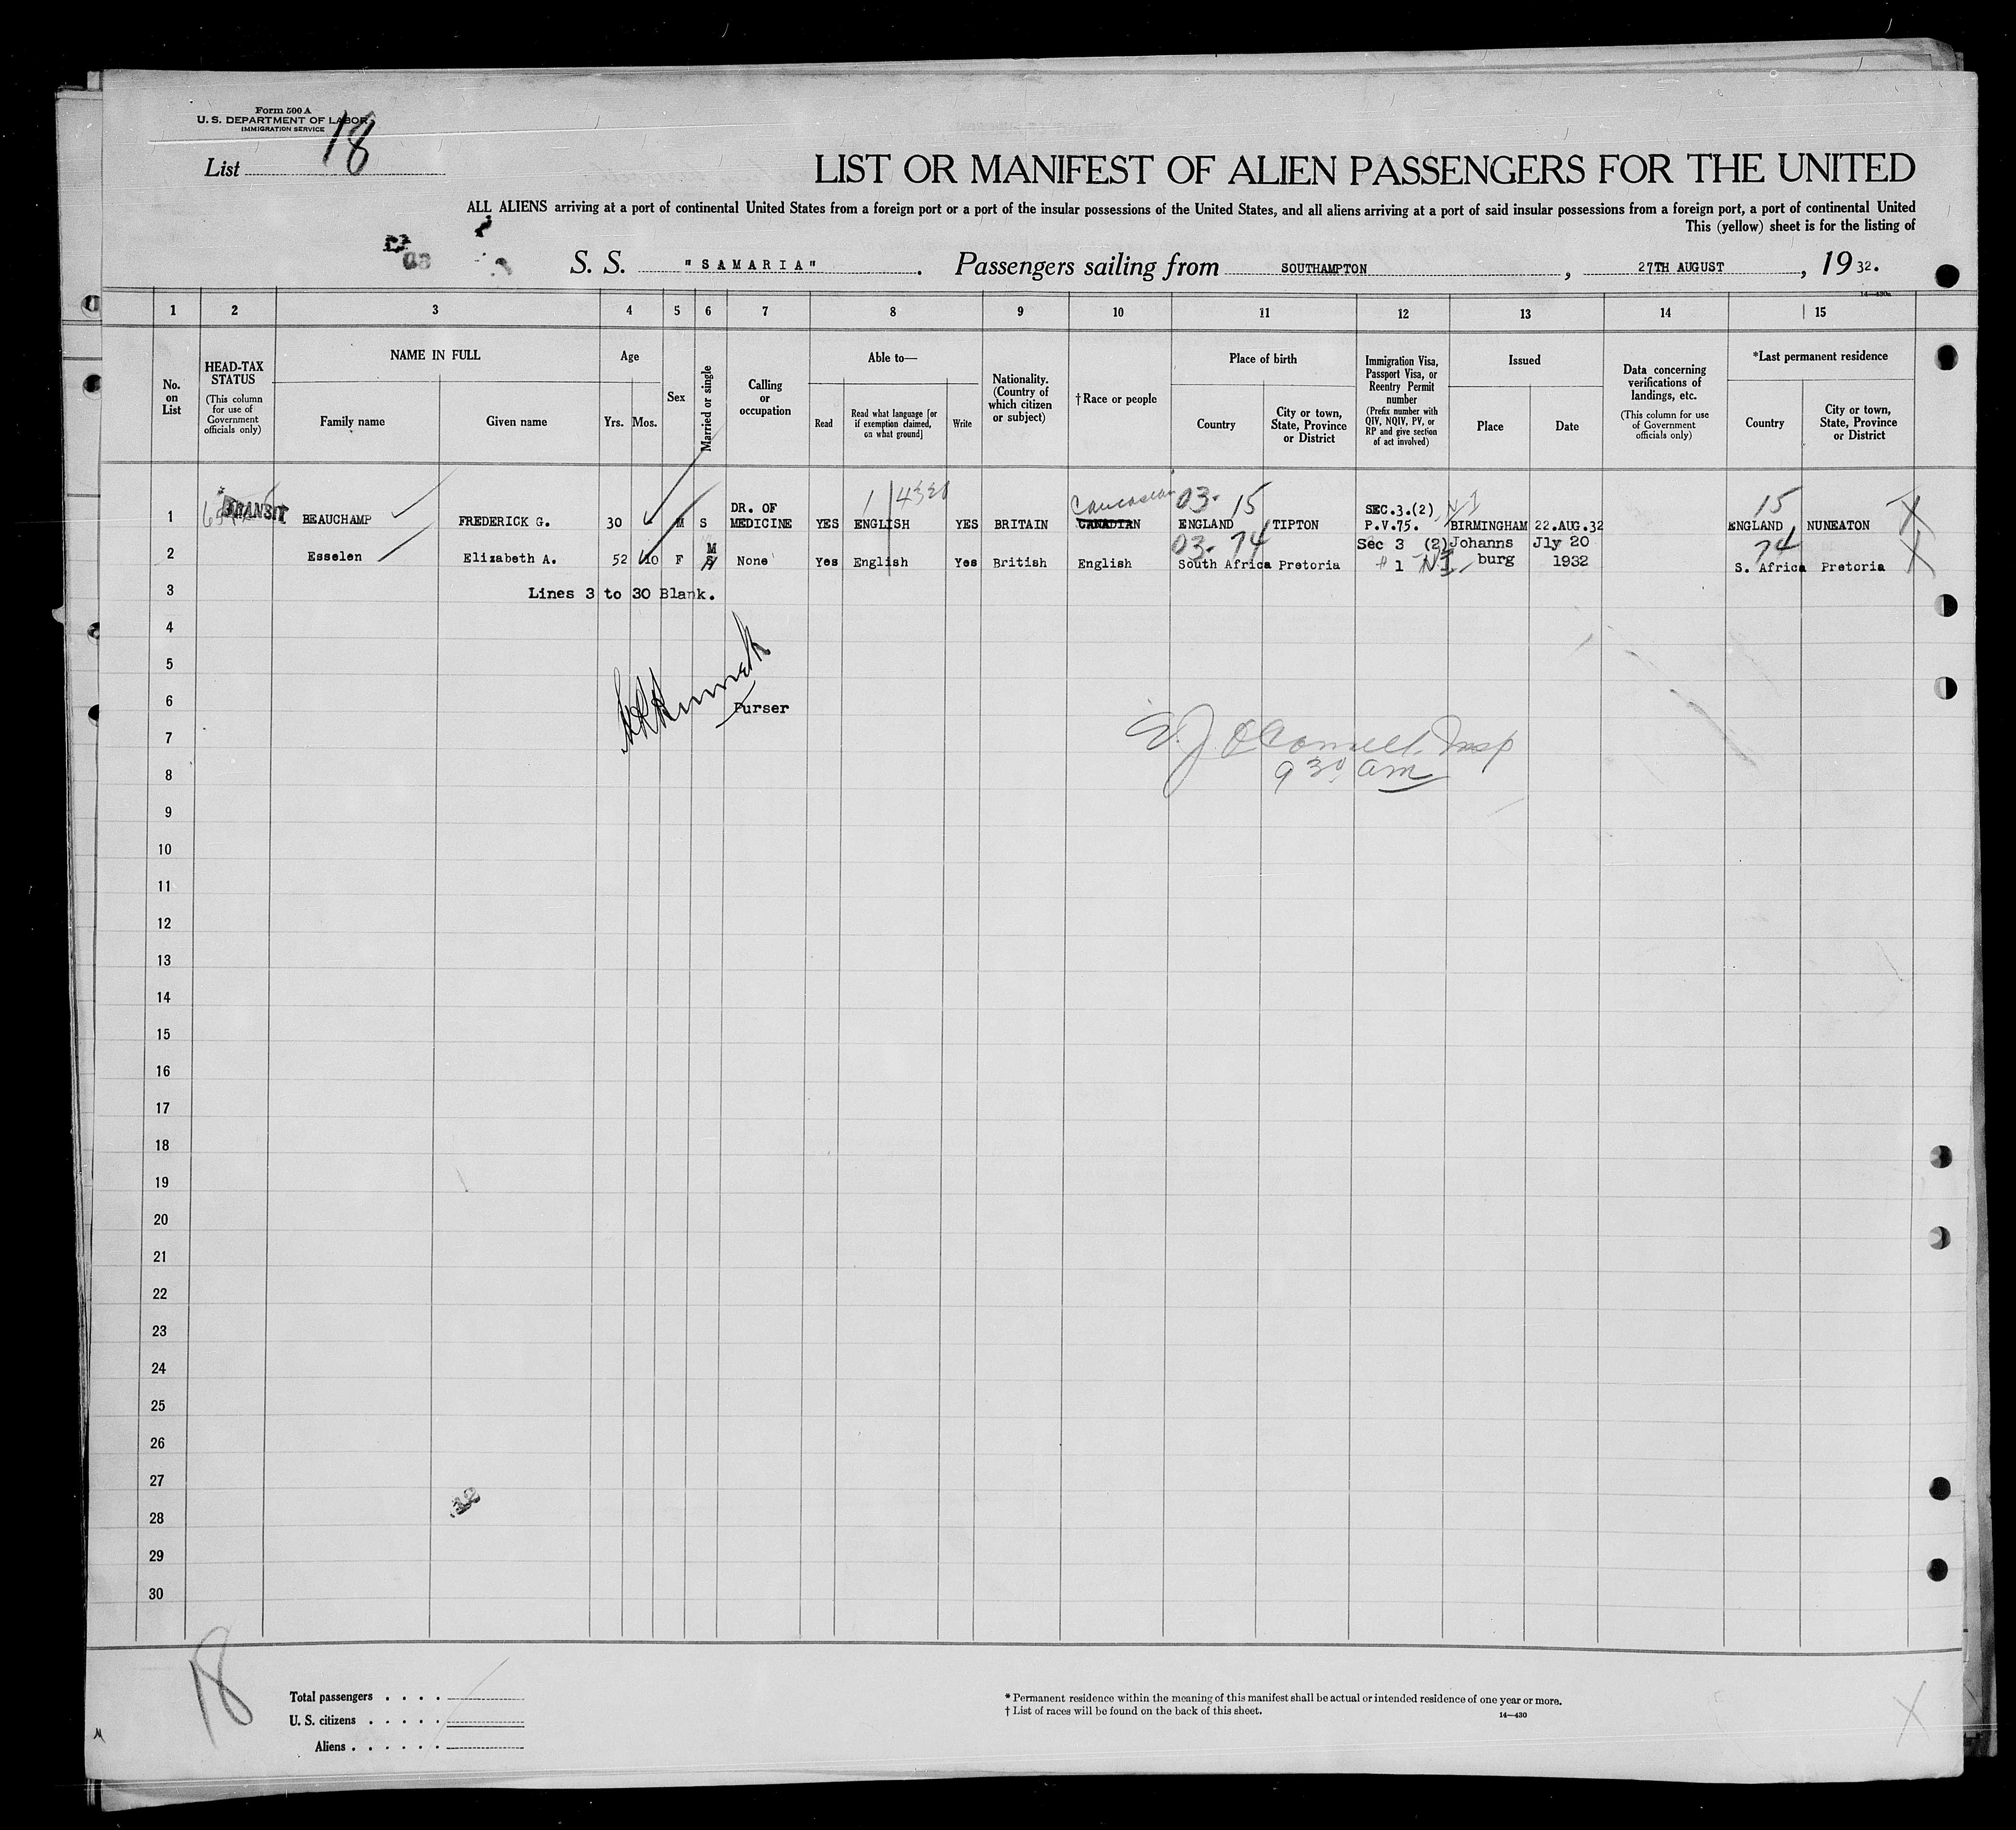 Form 500 A
U. S. DEPARTMENT OF LABOR
IMMIGRATION SERVICE
List 18
LIST OR MANIFEST OF ALIEN PASSENGERS FOR THE UNITED
ALL ALIENS arriving at a port of continental United States from a foreign port or a port of the insular possessions of the United States, and all aliens arriving at a port of said insular possessions from a foreign port, a port of continental United
This (yellow) sheet is for the listing of
S. S. "SAMARIA". Passengers sailing from SOUTHAMPTON, 27TH AUGUST, 1932.
14—430a
1 2 3 4 5 6 7 8 9 10 11 12 13 14 15
No. on List
HEAD-TAX STATUS
(This column for use of Government officials only)
NAME IN FULL
Family name Given name
Age
Yrs. Mos.
Sex
Married or single
Calling or occupation
Able to—
Read Read what language [or if exemption claimed, on what ground] Write
Nationality. (Country of which citizen or subject)
†Race or people
Place of birth
Country City or town, State, Province or District
Immigration Visa, Passport Visa, or Reentry Permit number
(Prefix number with QIV, NQIV, PV, or RP and give section of act involved)
Issued
Place Date
Data concerning verifications of landings, etc.
(This column for use of Government officials only)
*Last permanent residence
Country City or town, State, Province or District
Caucasian 03- 15 15
TRANSIT DR. OF SEC.3.(2)
1 BEAUCHAMP FREDERICK G. 30 M S MEDICINE YES ENGLISH YES BRITAIN CANADIAN ENGLAND TIPTON P.V.75. BIRMINGHAM 22.AUG.32 ENGLAND NUNEATON
M 03- 74 Sec 3 (2) Johanns Jly 20 74
2 Esselen Elizabeth A. 52 10 F None Yes English Yes British English South Africa Pretoria # 1 burg 1932 S. Africa Pretoria
3 Lines 3 to 30 Blank.
4
5
6 Purser
7 O'Connell. Insp
8 9 30 am
9
10
11
12
13
14
15
16
17
18
19
20
21
22
23
24
25
26
27
28
29
30
18
Total passengers . . . .
U. S. citizens . . . . .
Aliens . . . . . .
* Permanent residence within the meaning of this manifest shall be actual or intended residence of one year or more.
† List of races will be found on the back of this sheet.
14—430